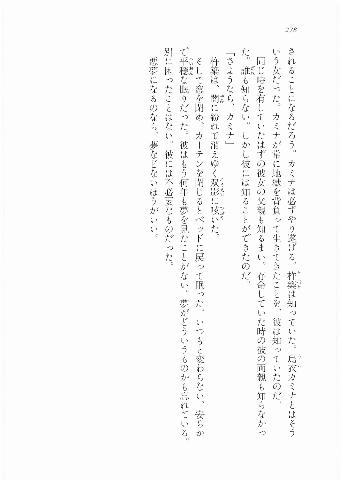 278
されることになるだろう。カミナは必ずやり遂げる。柊薬は知っていた。烏衣カミナとはそう
いう女だった。カミナが常に地獄を背負って生きてきたことを、彼は知っていたのだ。
同じ時を有していたはずの彼女の父親も知るまい。存命していた時の彼の両親も知らなかっ
た。誰も知らない。しかし彼には知ることができたのだ。
「さようなら、カミナ」
柊薬は、闇に紛れて消えゆく双影に呟いた。
そして窓を閉め、カーテンを閉じるとベッドに戻って眠った。いつもと変わらない、安らか
で平穏な眠りだった。彼はもう何年も夢を見たことがない。夢がどういうものかも忘れている。
別に困ったことはない。彼には不必要なものだった。
悪夢になるのなら、夢などないほうがいい。